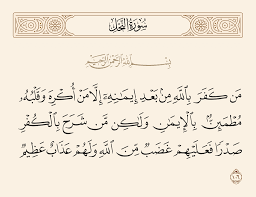 سُورَةُ النَّحْلِ
بِسْمِ اللَّهِ الرَّحْمَٰنِ الرَّحِيمِ
مَن كَفَرَ بِاللَّهِ مِنۢ بَعْدِ إِيمَٰنِهِۦٓ إِلَّا مَنْ أُكْرِهَ وَقَلْبُهُۥ
مُطْمَئِنٌّۢ بِالْإِيمَٰنِ وَلَٰكِن مَّن شَرَحَ بِالْكُفْرِ
صَدْرًا فَعَلَيْهِمْ غَضَبٌ مِّنَ اللَّهِ وَلَهُمْ عَذَابٌ عَظِيمٌ
١٠٦